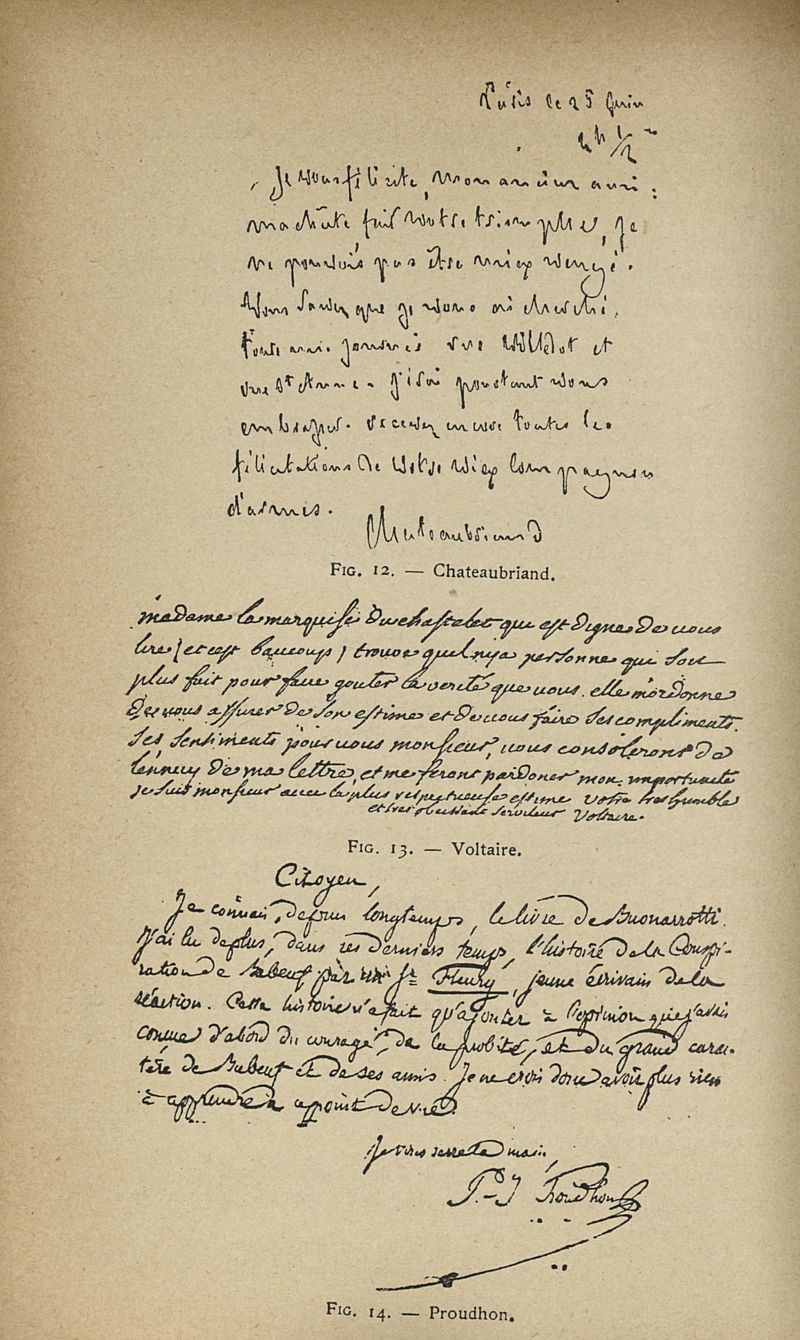 Paris le 25 juin
4 h 1/2
Je vous félicite, mon ancien ami;
ma chûte fait votre triomphe, je
ne pouvois pas être mieux vengé.
Vous savez que je vous ai cherché,
toute une journée rue et
rue Ste Anne. J'irai pourtant vous
embrasser. recevez encore toutes les
félicitations de votre vieux compagnon
d'armes.
Chateaubriand
FIG. 12. — Chateaubriand.
madame la marquise Du chastelet que est digne De vous
lire (et cest baucoup) trouve quel nya personne qui soit
plus fait pour faire gouter la verité que vous. elle m'ordonne
De vous assurer De son estime et De vous faire ses compliments.
Ses sentiments pour vous monsieur, vous consoleront De
lennuy De ma lettre, et me feront pardoner mon importunité
je suis monsieur avec la plus respectueuse estime votre tres humble
et tres obeissant serviteur Voltaire.
FIG. 13. — Voltaire.
Citoyen,
Je connais, depuis longtemps, le livre de Buonarrotti.
J'ai lu de plus, dans ces derniers temps, l'histoire de la Conspi-
ration de Babeuf par un Jr Fleury, jeune écrivain de la
réaction. Cette histoire n'a fait qu'ajouter à l'opinion que j'avais
conçue d'abord du courage, de la probité, et du grand carac-
tère de Babeuf et de ses amis. Je ne crois donc avoir plus rien
à apprendre à ce point de vue.
Je vous serre la main,
P.-J. Proudhon
FIG. 14. — Proudhon.